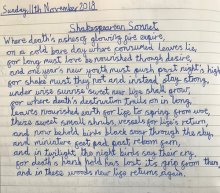 Sunday 11th November 2018
Shakespearean Sonnet
Where death's ashes of glowing fire expire,
on a cold bare day where consumed leaves lie,
for long must love be nourished though desire,
and one year's new youth must push past night's high
for shake must they not and instead stay strong,
under wise sunrise sweet new life shall grow,
for where death's destruction trails on in long,
leaves nourished earth for life to spring from
these sweet small shrubs, vessels for life's return,
and now behold birds black soar through the sky,
and miniature feet pad past roam fern,
and in twilight the night birds say their cry,
For death's hand held has lost its grip from then,
and in these woods new life returns again.